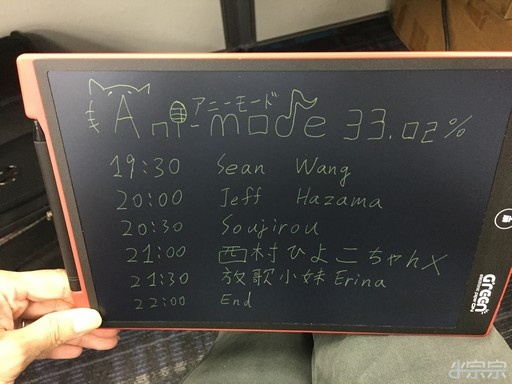 アニーモード
Ani-mode 33.02%
19:30 Sean Wang
20:00 Jeff Hazama
20:30 Soujirou
21:00 西村ひよこちゃんX
21:30 放歌小妹Erina
22:00 End
Green
小宗宗